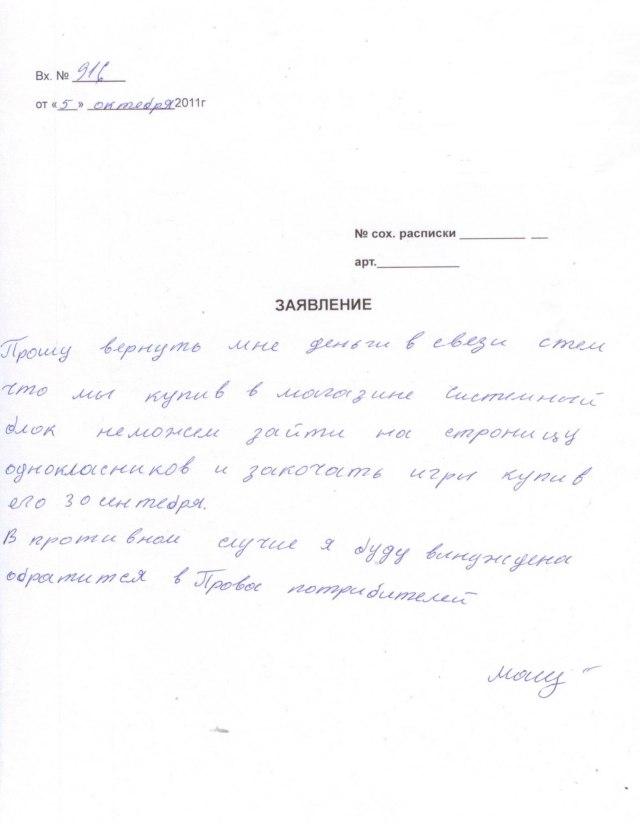 Вх. № 916
от «5» октября 2011г
№ сох. расписки __________ __
арт.____________
ЗАЯВЛЕНИЕ
Прошу вернуть мне деньги в свези стем
что мы купив в магазине Системный
блок неможем зайти на строницу
однокласников и закочать игры купив
его 30 сентебря.
В противном случие я буду вынуждена
обратится в Права потрибителей